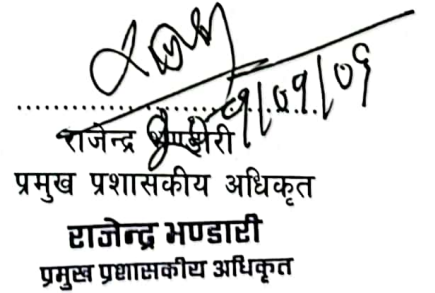 राजेन्द्र भण्डारी
प्रमुख प्रशासकीय अधिकृत
राजेन्द्र भण्डारी
प्रमुख प्रशासकीय अधिकृत